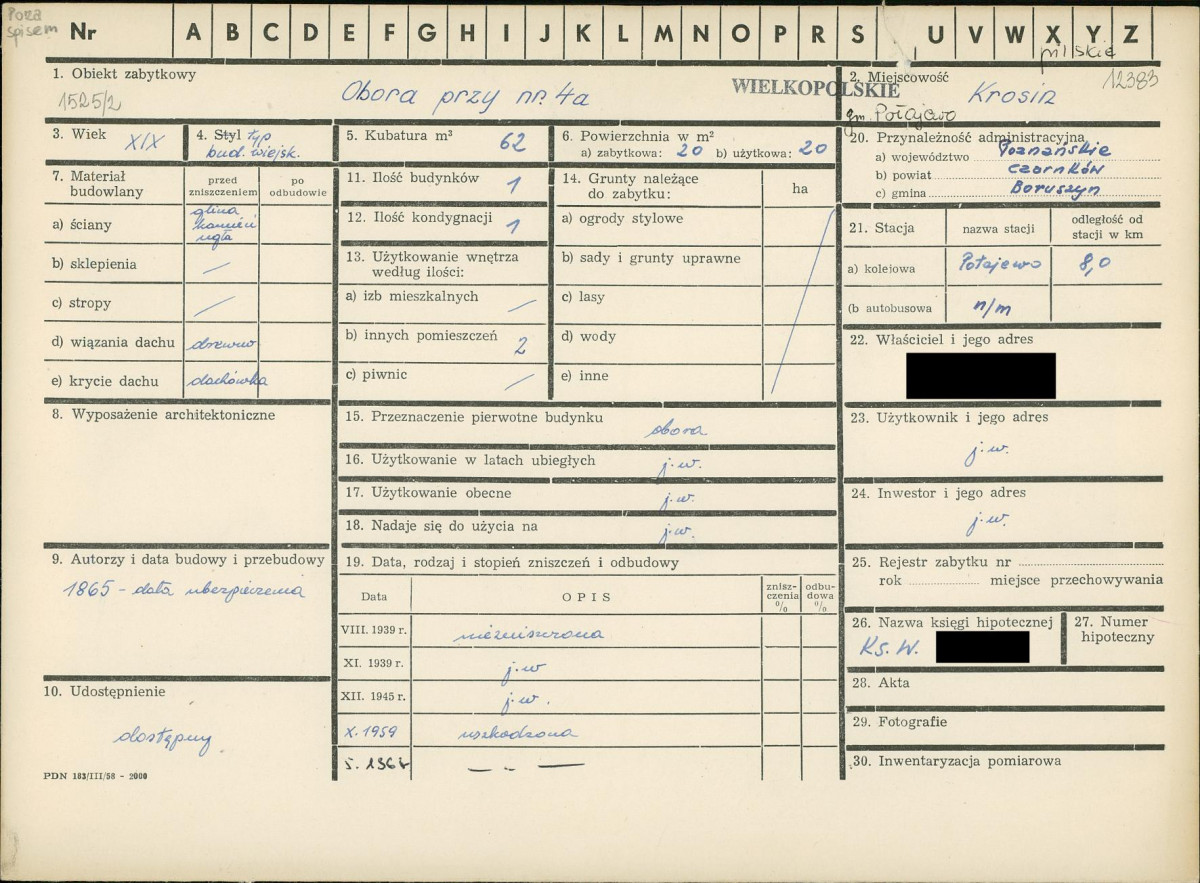 Poza
spisem
Nr A B C D E F G H I J K L M N O P R S U V W X Y Z
pilskie
1. Obiekt zabytkowy
1525/2
Obora przy nr. 4a
WIELKOPOLSKIE
2. Miejscowość
12383
Krosin
gm. Połajewo
3. Wiek XIX
4. Styl typ
bud. wiejsk.
5. Kubatura m³ 62
6. Powierzchnia w m²
a) zabytkowa: 20 b) użytkowa: 20
7. Materiał
budowlany
przed
zniszczeniem
po
odbudowie
a) ściany
glina
kamień
cegła
b) sklepienia —
c) stropy —
d) wiązania dachu drzewo
e) krycie dachu dachówka
8. Wyposażenie architektoniczne
9. Autorzy i data budowy i przebudowy
1865 - data ubezpieczenia
10. Udostępnienie
dostępny
PDN 183/III/58 - 2000
11. Ilość budynków 1
12. Ilość kondygnacji 1
13. Użytkowanie wnętrza
według ilości:
a) izb mieszkalnych —
b) innych pomieszczeń 2
c) piwnic —
14. Grunty należące
do zabytku:
ha
a) ogrody stylowe
b) sady i grunty uprawne
c) lasy
d) wody
e) inne
15. Przeznaczenie pierwotne budynku
obora
16. Użytkowanie w latach ubiegłych j.w.
17. Użytkowanie obecne j.w.
18. Nadaje się do użycia na j.w.
19. Data, rodzaj i stopień zniszczeń i odbudowy
Data OPIS
znisz-
czenia
%
odbu-
dowa
%
VIII. 1939 r. niezniszczona
XI. 1939 r. j.w
XII. 1945 r. j.w.
X. 1959 uszkodzona
5. 1964 — „ —
20. Przynależność administracyjna
a) województwo Poznańskie
b) powiat Czarnków
c) gmina Boruszyn
21. Stacja
nazwa stacji
odległość od
stacji w km
a) kolejowa Połajewo 8,0
(b autobusowa n/m
22. Właściciel i jego adres
23. Użytkownik i jego adres
j.w.
24. Inwestor i jego adres
j.w.
25. Rejestr zabytku nr
rok miejsce przechowywania
26. Nazwa księgi hipotecznej
Ks. W.
27. Numer
hipoteczny
28. Akta
29. Fotografie
30. Inwentaryzacja pomiarowa